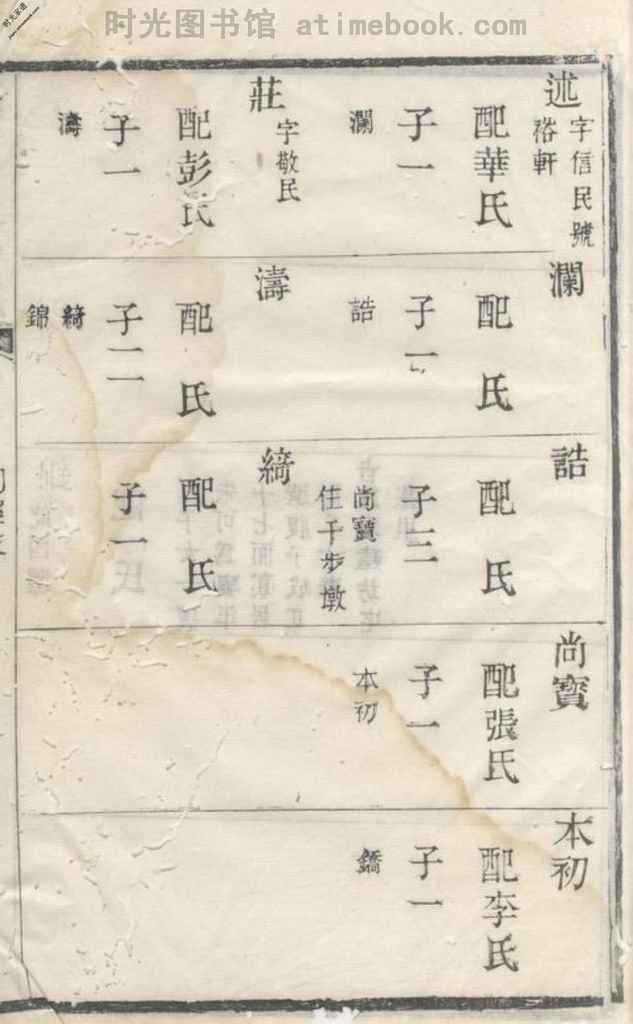 时光图书馆 atimebook.com
时光家谱
述
字信民號
裕軒
配華氏
子一
瀾
莊
字敬民
配彭氏
子一
濤
瀾
配 氏
子一
誥
濤
配 氏
子二
綺
錦
誥
配 氏
子三
尚寶
住千步墩
綺
配 氏
子一
尚寶
配張氏
子一
本初
本初
配李氏
子一
鐈